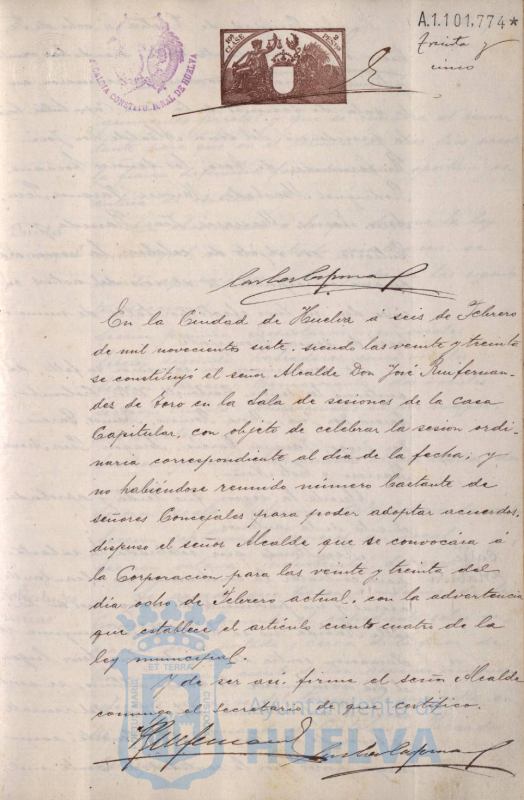 ALCALDIA CONSTITUCIONAL DE HUELVA
CLASE
PESETAS
A.1.101.774*
Treinta y
cinco
En la Ciudad de Huelva á seis de Febrero
de mil novecientos siete, siendo las veinte y treinta
se constituyó el señor Alcalde Don José Ruifernan-
dez de Toro en la Sala de sesiones de la casa
Capitular, con objeto de celebrar la sesion ordi-
naria correspondiente al dia de la fecha; y
no habiéndose reunido número bastante de
señores Concejales para poder adoptar acuerdos,
dispuso el señor Alcalde que se convocára á
la Corporacion para las veinte y treinta del
dia ocho de Febrero actual, con la advertencia
que establece el artículo ciento cuatro de la
ley municipal.
Y de ser asi, firma el señor Alcalde
conmigo el Secretario de que certifico.
ET TERRÆ
Ayuntamiento de
HUELVA